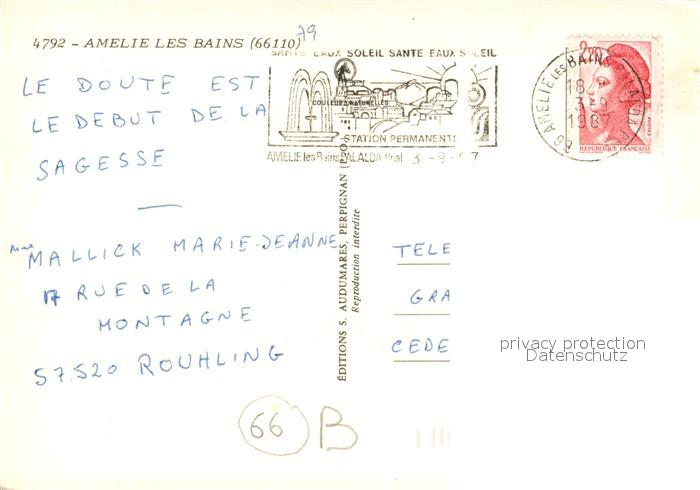 79
4792 - AMELIE LES BAINS (66110)
SANTE EAUX SOLEIL SANTE EAUX SOLEIL
COULEURS NATURELLES
STATION PERMANENTE
AMELIE les Bains PALALDA Ppal 3 -9- 87
AMELIE LES BAINS PALALDA
66
18
3-9
1987
2,20
REPUBLIQUE FRANÇAISE
LE DOUTE EST
LE DEBUT DE LA
SAGESSE
Mme
MALLICK MARIE-JEANNE
17 RUE DE LA
MONTAGNE
57.520 ROUHLING
ÉDITIONS S. AUDUMARES, PERPIGNAN
Reproduction interdite
TELE
GRA
CEDE
privacy protection
Datenschutz
66 B